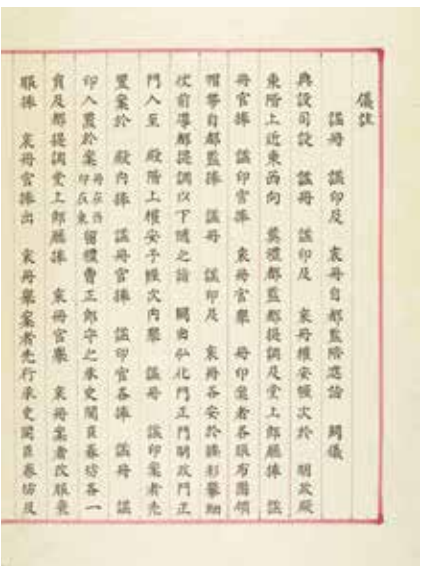 儀註
謚冊 謚印及 哀冊自都監陪進詣 闕儀
典設司設 謚冊 謚印及 哀冊權安幄次於 明政殿
東階上近東西向 禮都監都提調及堂上郎廳捧 謚
冊官捧 謚印官捧 哀冊官擧 冊印案者各服布團領
帽帶自都監捧 謚冊 謚印及 哀冊各安於腰彩轝細
仗前導都提調以下隨之詣 闕由弘化門正門明政門正
門入至 殿階上權安于幄次內擧 謚冊 謚印案者先
置案於 殿內捧 謚冊官捧 謚印官各捧 謚冊 謚
印入置於案冊在西印在東留禮曹正郎守之承史閣臣春坊各一
員及都提調堂上郎廳捧 哀冊官擧 哀冊案者改服衰
服捧 哀冊官捧出 哀冊擧案者先行承史閣臣春坊及